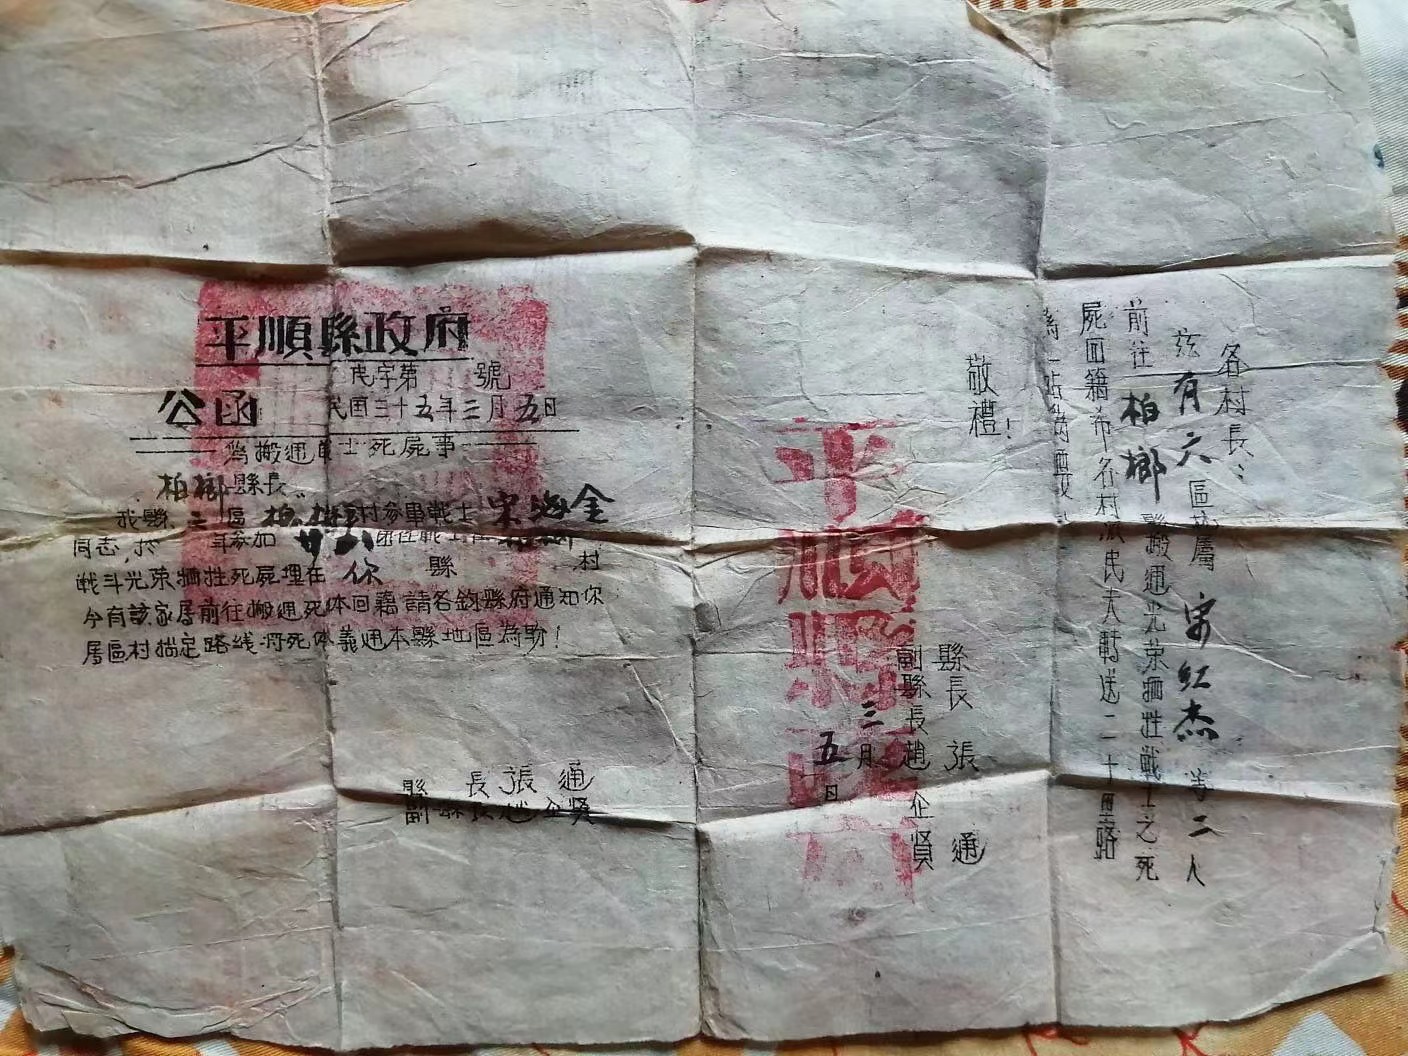 平順縣政府
民字第 號
公函 民囯三十五年三月五日
為搬運戰士死屍事
柏榔縣長
我縣 三 區 村參軍戰士 宋海金
同志於 年參加 團在戰
战斗光荣牺牲死屍埋在 縣 村
今有該家屬前往搬運死体回籍請各鈞縣府通知你
屬區村指定路线将死体義運本縣地區為盼!
縣 長 張 通
副縣長趙企賢
各村長:
兹有六區 屬 宋紅杰 等二人
前往柏榔縣搬運光荣牺牲戰士之死
屍囬籍希各村派民夫轉送二十里路
為一站為要
敬禮!
縣長 張 通
副縣長趙企賢
三月
五日
平順縣